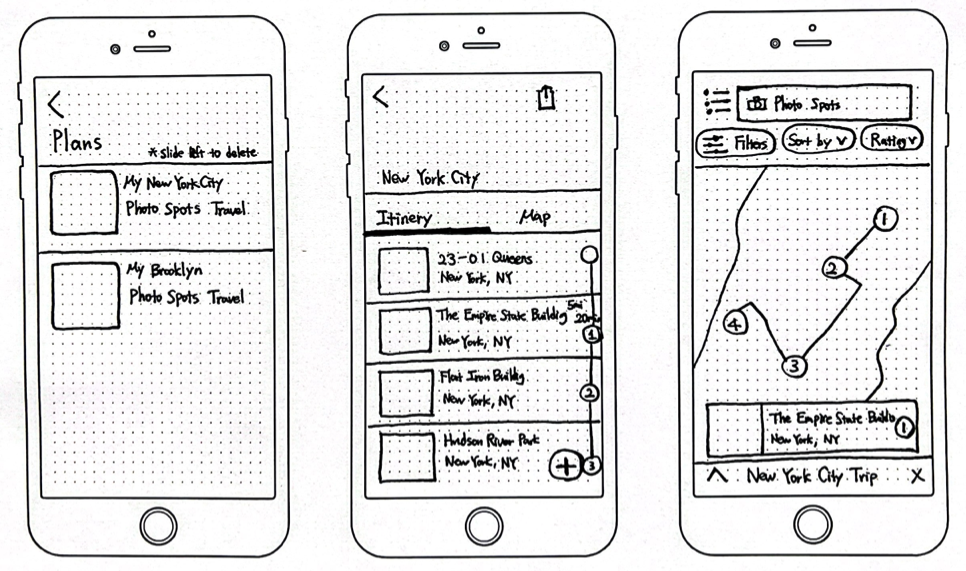 Plans
*Slide left to delete
My New York City
Photo Spots Travel
My Brooklyn
Photo Spots Travel
New York City
Itinery
Map
23-01 Queens
New York, NY
The Empire State Buildig
5mi
20min
New York, NY
1
Flat Iron Buildig
New York, NY
2
Hudson River Park
New York, NY
+
3
Photo Spots
Filters
Sort by
Rating
1
2
4
3
The Empire State Buildin
New York, NY
1
New York City Trip
X